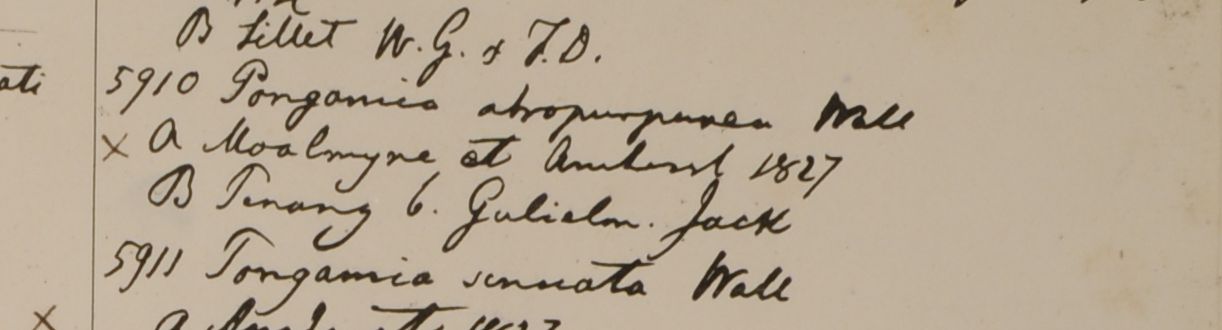 B Sillet W. G. & F. D.
ati
5910 Pongamia atropurpurea Wall
x A Moalmyne et Amherst 1827
B Penang b. Gulielm. Jack
5911 Pongamia sinuata Wall
x